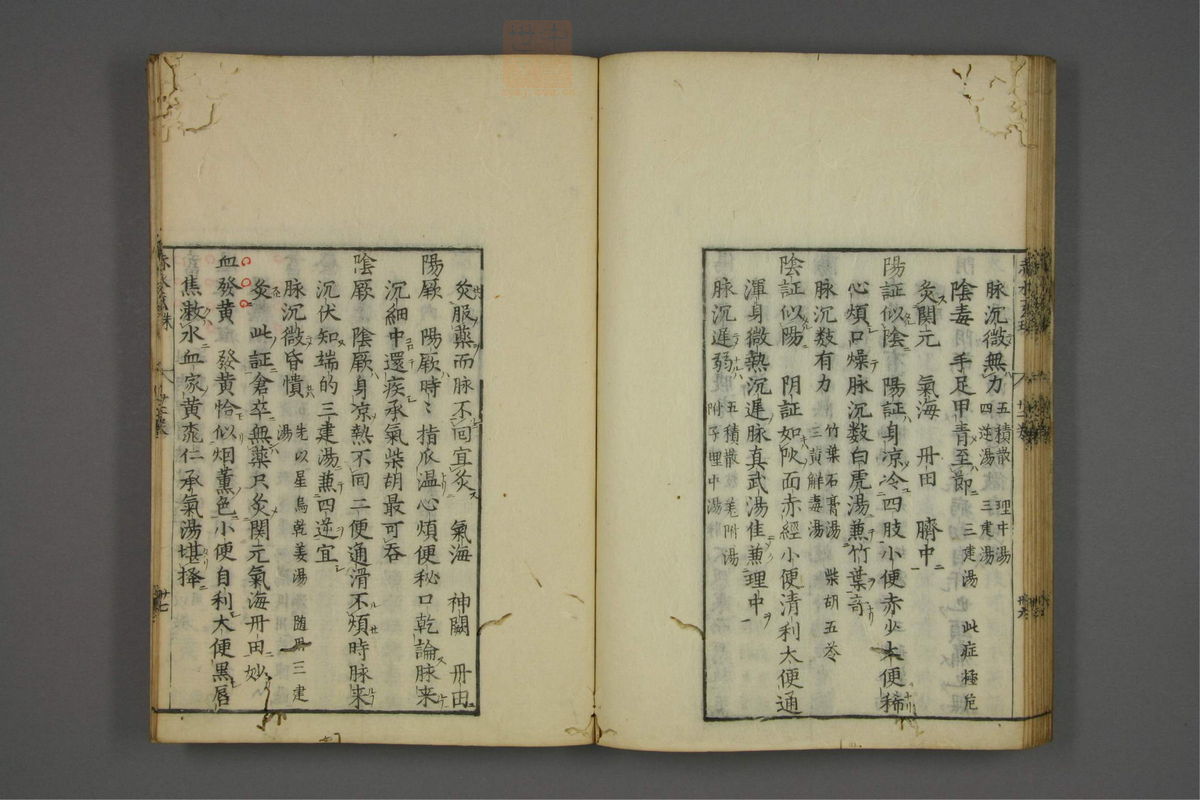 脉沉微無力 五積散 理中湯 四逆湯 三建湯
陰毒 手足甲青至節 三建湯 此症極危
灸関元 氣海 丹田 臍中
陽証似陰 陽証身凉冷四肢小便赤少大便稀
心煩口燥脉沉数白虎湯兼竹葉
脉沉数有力 竹葉石膏湯 柴胡五苓 三黄解毒湯
陰証似陽 阴証如陽面赤經小便清利大便通
渾身微熱沉遲脉真武湯佳兼理中
脉沉遲弱 五積散 附湯 附子理中湯
灸服藥而脉不回宜灸 氣海 神闕 丹田
陽厥 陽厥時〻指爪温心煩便秘口乾論脉来
沉細中還疾承氣柴胡最可吞
陰厥 陰厥身凉熱不同二便通滑不煩時脉来
沉伏知端的三建湯兼四逆宜
脉沉微昏憒 先以星烏乾姜湯 随用三建湯
灸 此証倉卒無藥只灸関元氣海丹田妙
血發黄 發黄恰似烟薰色小便自利大便黒唇
焦漱水血家黄桃仁承氣湯堪擇